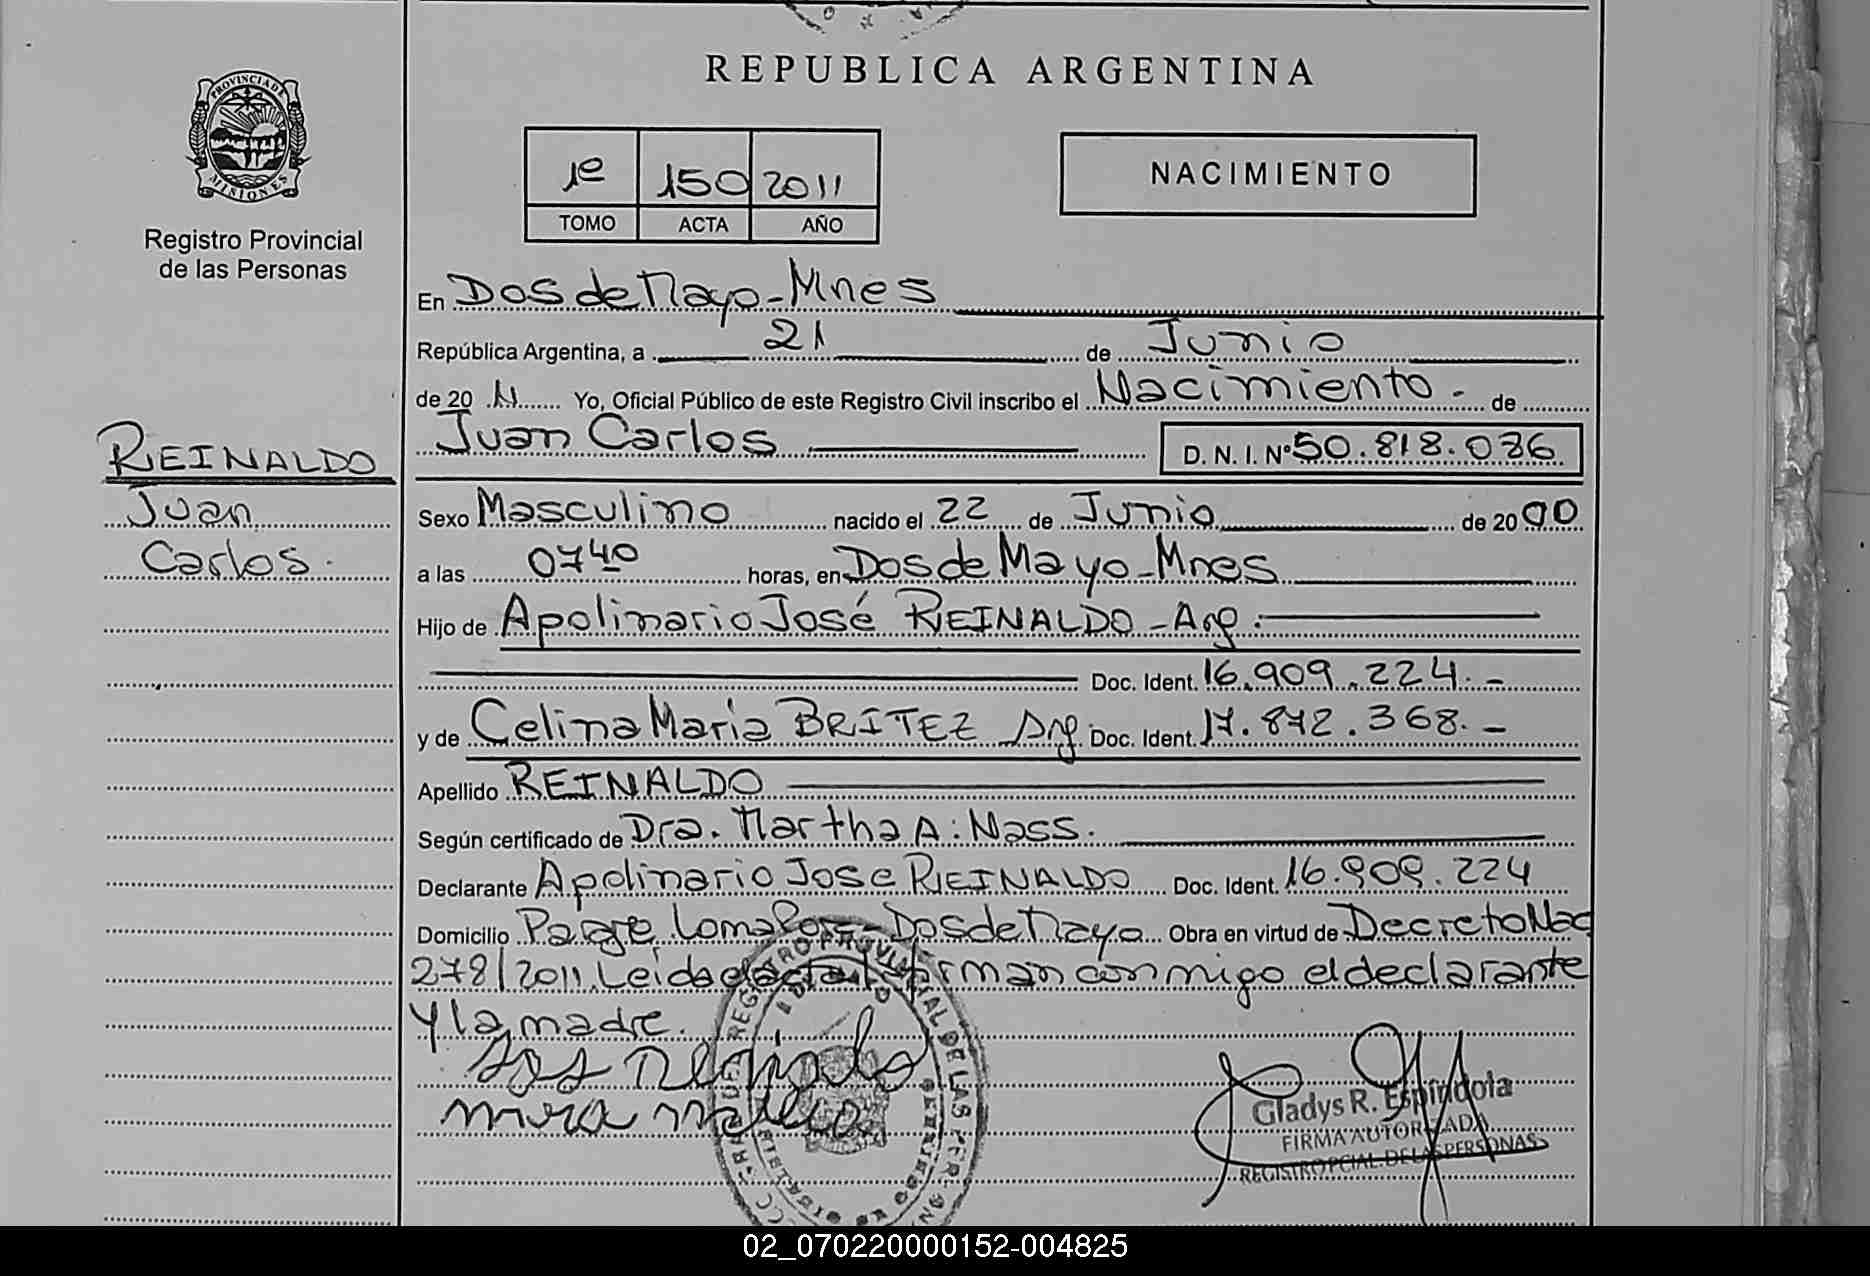 REPUBLICA ARGENTINA
PROVINCIA DE MISIONES
Registro Provincial
de las Personas
1º 150 2011
TOMO ACTA AÑO
NACIMIENTO
En Dos de Mayo - Mnes
República Argentina, a 21 de Junio
de 20 11 Yo, Oficial Público de este Registro Civil inscribo el Nacimiento - de
Juan Carlos D. N. I. Nº 50.818.036
REINALDO
Juan
Carlos.
Sexo Masculino nacido el 22 de Junio de 20 00
a las 07 40 horas, en Dos de Mayo - Mnes
Hijo de Apolinario José REINALDO - Arg.
Doc. Ident. 16.909.224.-
y de Celina María BRITEZ Arg. Doc. Ident. 17.872.368.-
Apellido REINALDO
Según certificado de Dra. Martha A. Nass.
Declarante Apolinario Jose REINALDO Doc. Ident. 16.909.224
Domicilio Paraje Loma - Dos de Mayo Obra en virtud de Decreto Nac
278/2011. Leida el acta firman conmigo el declarante
y la madre.
REGISTRO PROVINCIAL DE LAS PERSONAS
Gladys R. Espíndola
FIRMA AUTORIZADA
REGISTRO PCIAL. DE LAS PERSONAS
02_070220000152-004825